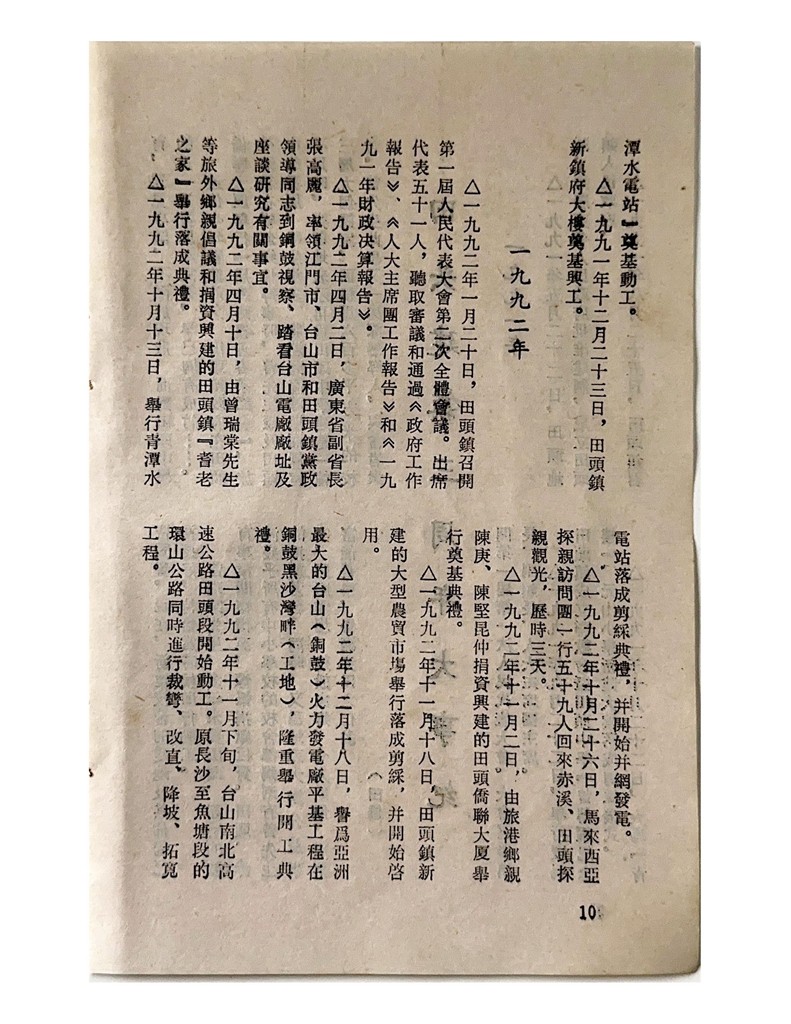 潭水電站』奠基動工。
△一九九一年十二月二十三日，田頭鎮
新鎮府大樓奠基興工。
一九九二年
△一九九二年一月二十日，田頭鎮召開
第一屆人民代表大會第二次全體會議。出席
代表五十一人，聽取審議和通過《政府工作
報告》、《人大主席團工作報告》和《一九
九一年財政決算報告》。
△一九九二年四月二日，廣東省副省長
張高麗，率領江門市、台山市和田頭鎮黨政
領導同志到銅鼓視察、踏看台山電廠廠址及
座談研究有關事宜。
△一九九二年四月十日，由曾瑞棠先生
等旅外鄉親倡議和捐資興建的田頭鎮『耆老
之家』舉行落成典禮。
△一九九二年十月十三日，舉行青潭水
電站落成剪綵典禮，并開始并網發電。
△一九九二年十月二十六日，馬來西亞
探親訪問團一行五十九人回來赤溪、田頭探
親觀光，歷時三天。
△一九九二年十一月二日，由旅港鄉親
陳庚、陳堅昆仲捐資興建的田頭僑聯大厦舉
行奠基典禮。
△一九九二年十一月十八日，田頭鎮新
建的大型農貿市場舉行落成剪綵，并開始啓
用。
△一九九二年十二月十八日，譽爲亞洲
最大的台山（銅鼓）火力發電廠平基工程在
銅鼓黑沙灣畔（工地），隆重舉行開工典
禮。
△一九九二年十一月下旬，台山南北高
速公路田頭段開始動工。原長沙至魚塘段的
環山公路同時進行裁彎、改直、降坡、拓寬
工程。
10